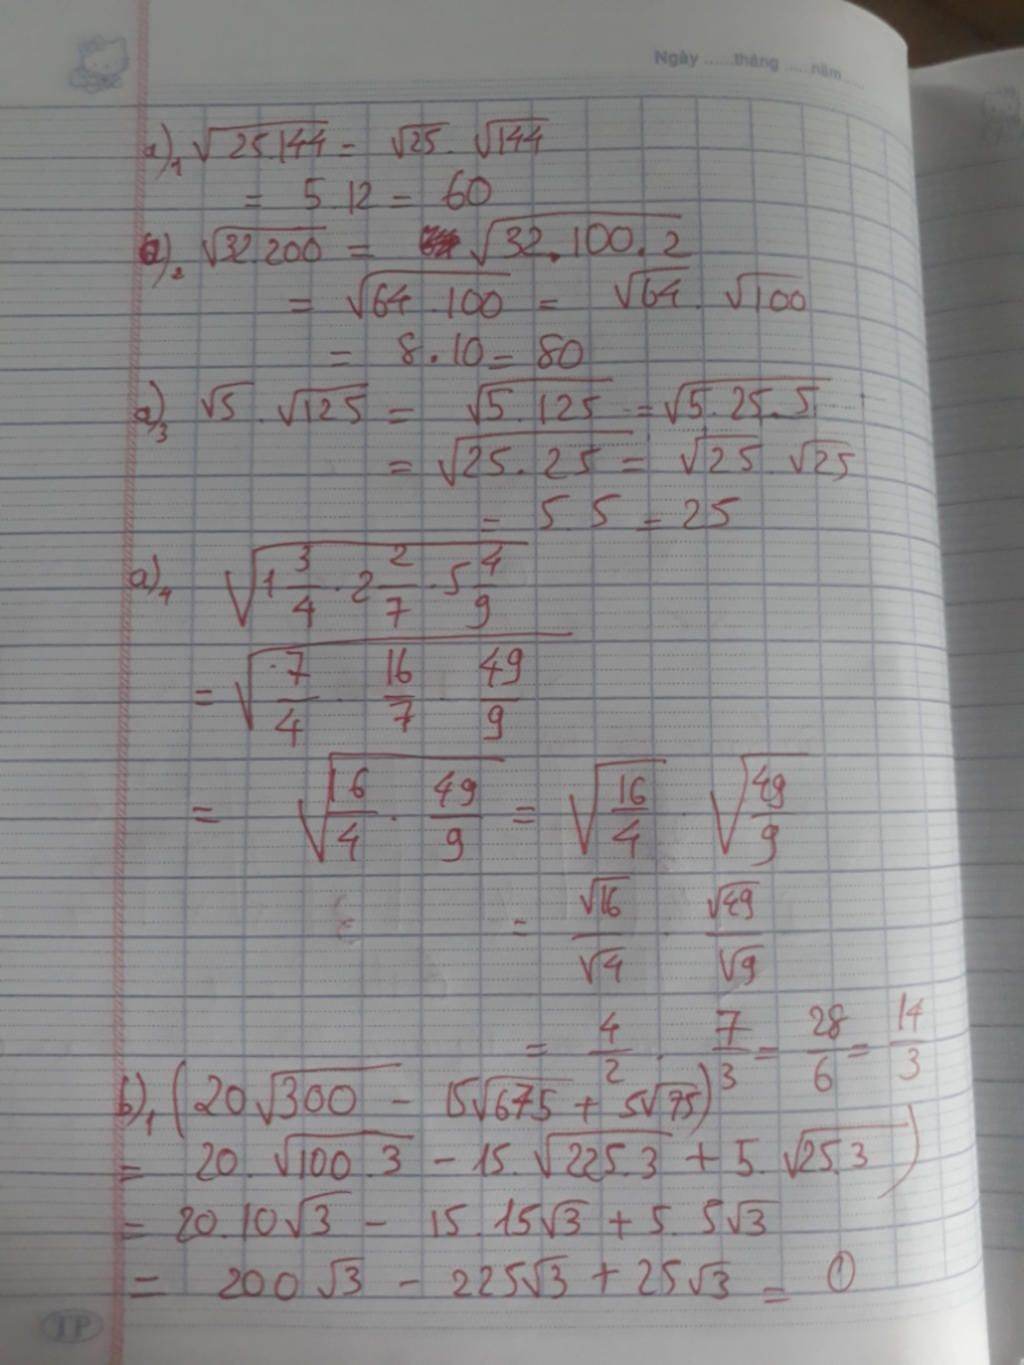 Ngày ......tháng ......năm......
a)₁ √(25.144) = √25 . √144
= 5.12 = 60
a)₂ √(32.200) = √(32.100.2)
= √(64.100) = √64 . √100
= 8.10 = 80
a)₃ √5 . √125 = √(5.125) = √(5.25.5)
= √(25.25) = √25 . √25
= 5.5 = 25
a)₄ √(1 3/4 . 2 2/7 . 5 4/9)
= √(7/4 . 16/7 . 49/9)
= √(16/4 . 49/9) = √(16/4) . √(49/9)
= √16/√4 . √49/√9
= 4/2 . 7/3 = 28/6 = 14/3
b)₁ (20√300 - 15√675 + 5√75)
= 20.√(100.3) - 15.√(225.3) + 5.√(25.3))
= 20.10√3 - 15.15√3 + 5.5√3
= 200√3 - 225√3 + 25√3 = 0
TP